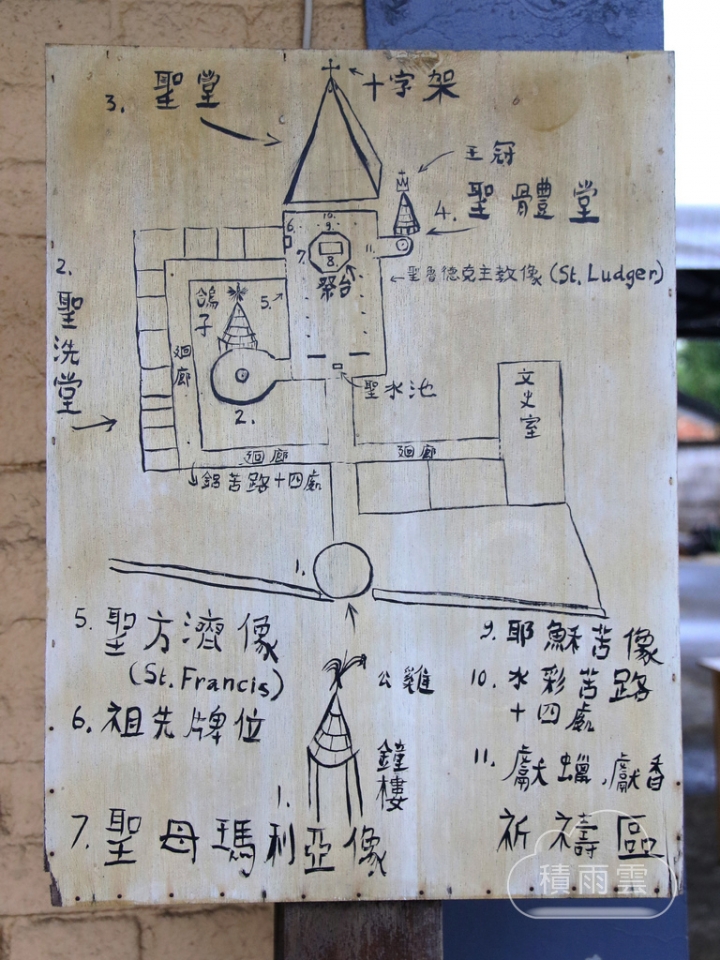 3. 聖堂
十字架
王冠
4. 聖體堂
10.
6.
9.
7.
8
11.
祭台
聖魯德克主教像 (St. Ludger)
2.
聖洗堂
鴿子
5.
迴廊
2.
聖水池
文史室
迴廊
迴廊
鋁苦路十四處
1.
5. 聖方濟像
(St. Francis)
6. 祖先牌位
7. 聖母瑪利亞像
公雞
1. 鐘樓
9. 耶穌苦像
10. 水彩苦路
十四處
11. 獻蠟.獻香
祈禱區
積雨雲